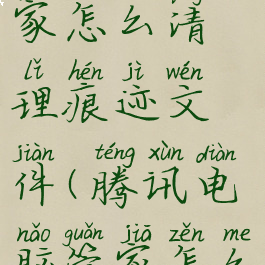 家怎么清
lǐ hén jì wén
理痕迹文
jiàn téng xùn diàn
件(腾讯电
nǎo guǎn jiā zěn me
脑管家怎么